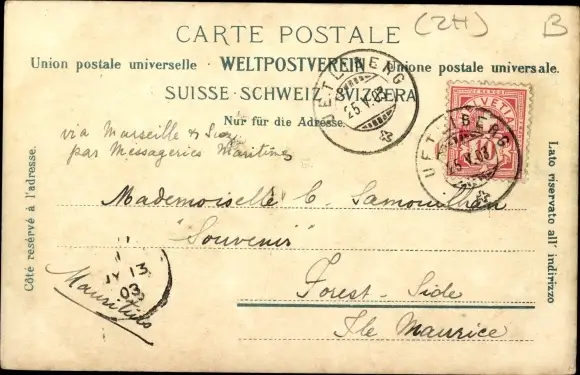 (2H)
B
CARTE POSTALE
Union postale universelle · WELTPOSTVEREIN · Unione postale universale.
SUISSE · SCHWEIZ · SVIZZERA
Nur für die Adresse.
UETLIBERG
25.V.03
HELVETIA
UETLIBERG
25.V.03
via Marseille & Suez
par Messageries Maritimes
Côté reservé à l'adresse.
Lato riservato all' indirizzo
Mademoiselle C. Samouilhan
"Souvenir"
Forest-Side
Ile Maurice
JY 13
03
Mauritius